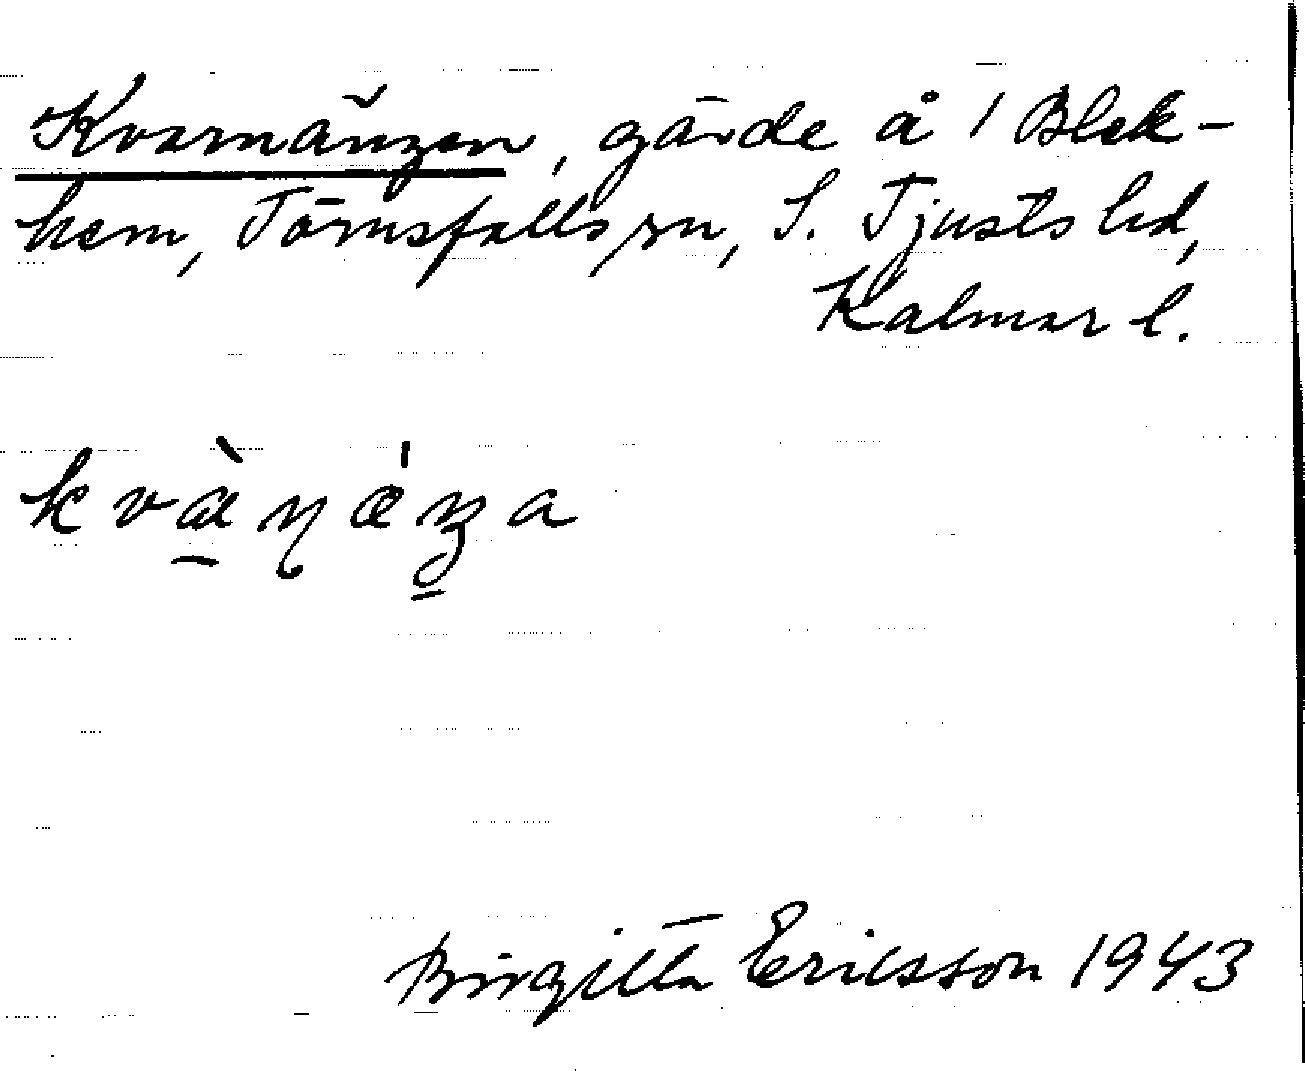 Kvarnängen, gärde å 1 Blek-
hem, Törnsfalls sn, S. Tjusts hd,
Kalmar l.
Birgitta Ericsson 1943